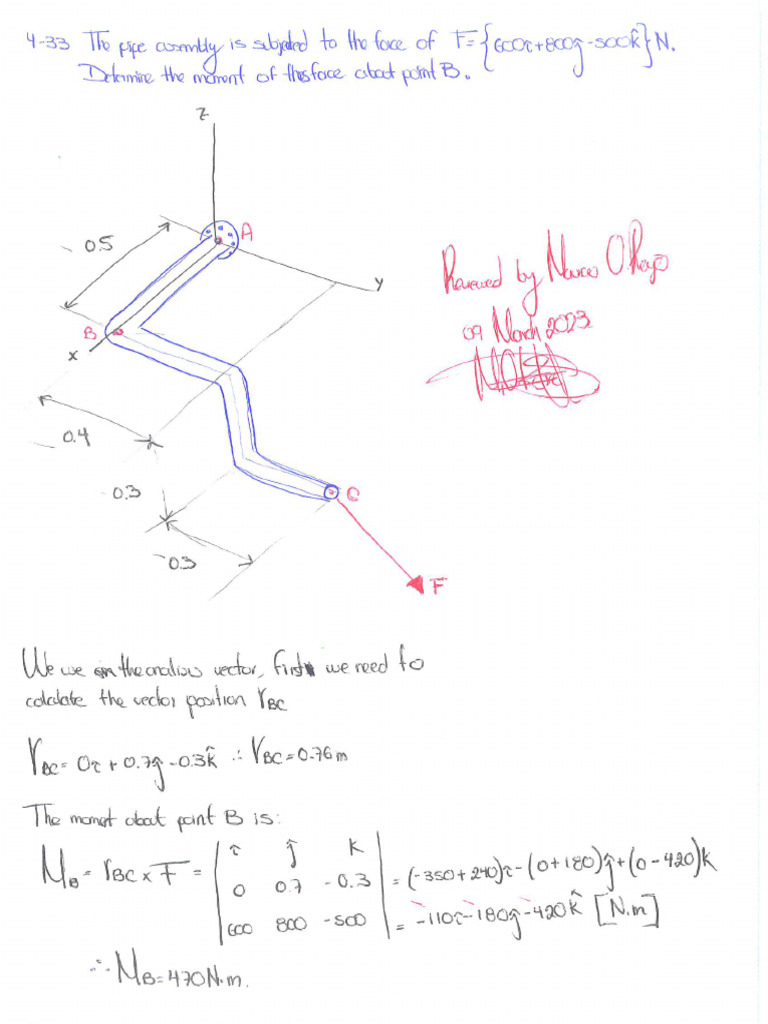 4-33 The pipe assembly is subjected to the force of F={600i+800j-500k̂}N.
Determine the moment of this force about point B.
Z
A
0.5
Y
B
x
0.4
0.3
C
0.3
F
Reviewed by
09 March 2023
vector, first we need to
calculate the vector position rBC
rBC= 0i + 0.7j - 0.3k̂ ∴ rBC=0.76m
The moment about point B is:
MB = rBC x F = | i ĵ k | = (-350+240)i-(0+180)ĵ+(0-420)k
0 0.7 -0.3
600 800 -500 = -110i-180ĵ-420k̂ [N.m]
∴ MB=470N.m.